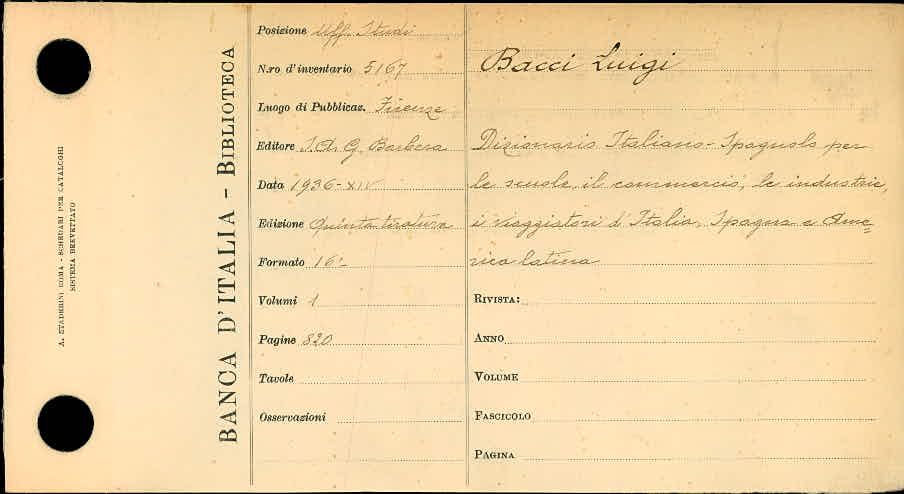 A. STADERINI ROMA - SCHEDARI PER CATALOGHI
SISTEMA BREVETTATO
BANCA D'ITALIA - BIBLIOTECA
Posizione Uff. Studi
N.ro d'inventario 5167
Luogo di Pubblicaz. Firenze
Editore S. A. G. Barbera
Data 1936-XIV
Edizione Quinta tiratura
Formato 16°
Volumi 1
Pagine 820
Tavole
Osservazioni
Bacci Luigi
Dizionario Italiano-Spagnolo per
le scuole, il commercio, le industrie,
i viaggiatori d'Italia, Spagna e Ame=
rica latina
RIVISTA:
ANNO
VOLUME
FASCICOLO
PAGINA